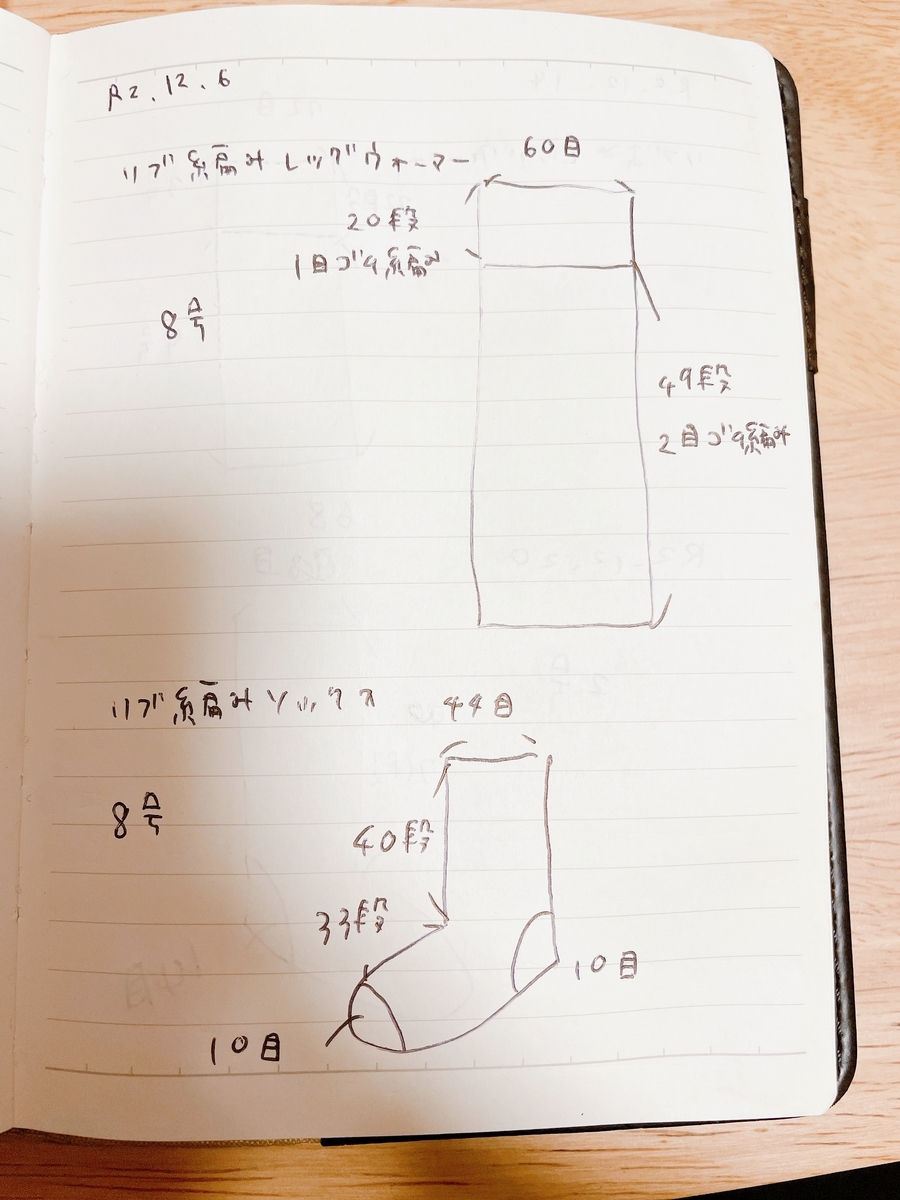 R2.12.6
リブ編みレッグウォーマー
60目
20段
1目ゴム編み
8号
49段
2目ゴム編み
リブ編みソックス
44目
8号
40段
33段
10目
10目